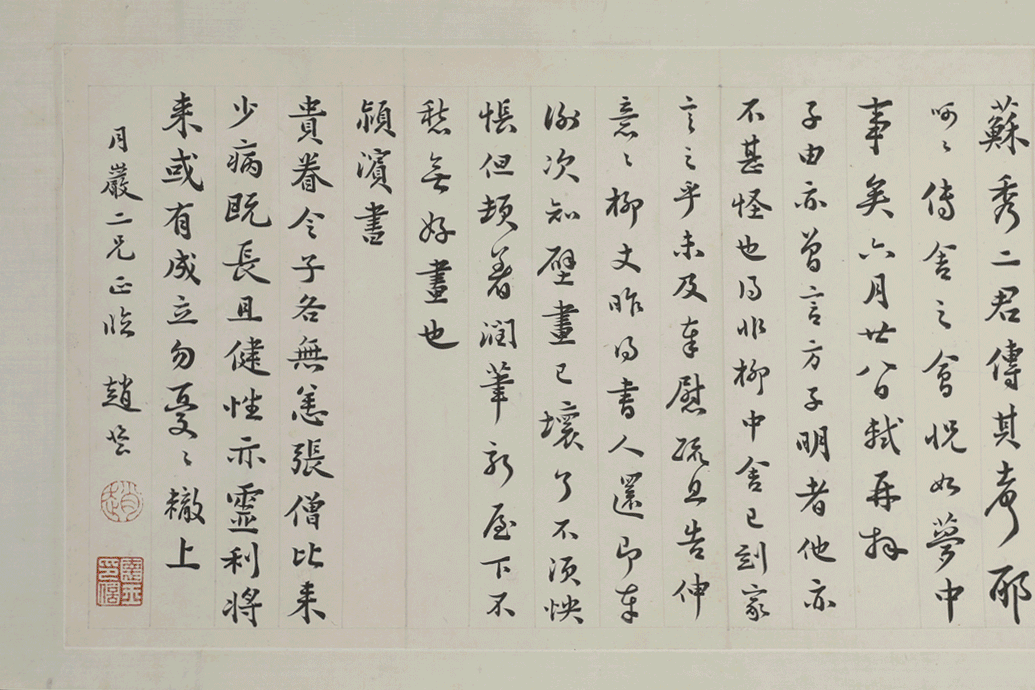 蘇秀二君傳其耶
呵〻傳舍之會怳如夢中
事矣六月廿八日軾再拜
子由亦曾言方子明者他亦
不甚怪也得非柳中舍已到家
言之乎未及奉慰疏且告伸
意〻柳丈昨得書人還即奉
謝次知壁畫已壞了不須怏
悵但頓著潤筆新屋下不
愁無好畫也
潁濱書
貴眷令子各無恙張僧比来
少病既長且健性亦靈利將
来或有成立勿憂〻轍上
月巖二兄正臨 趙